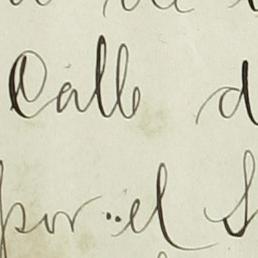 Calle d
por el S